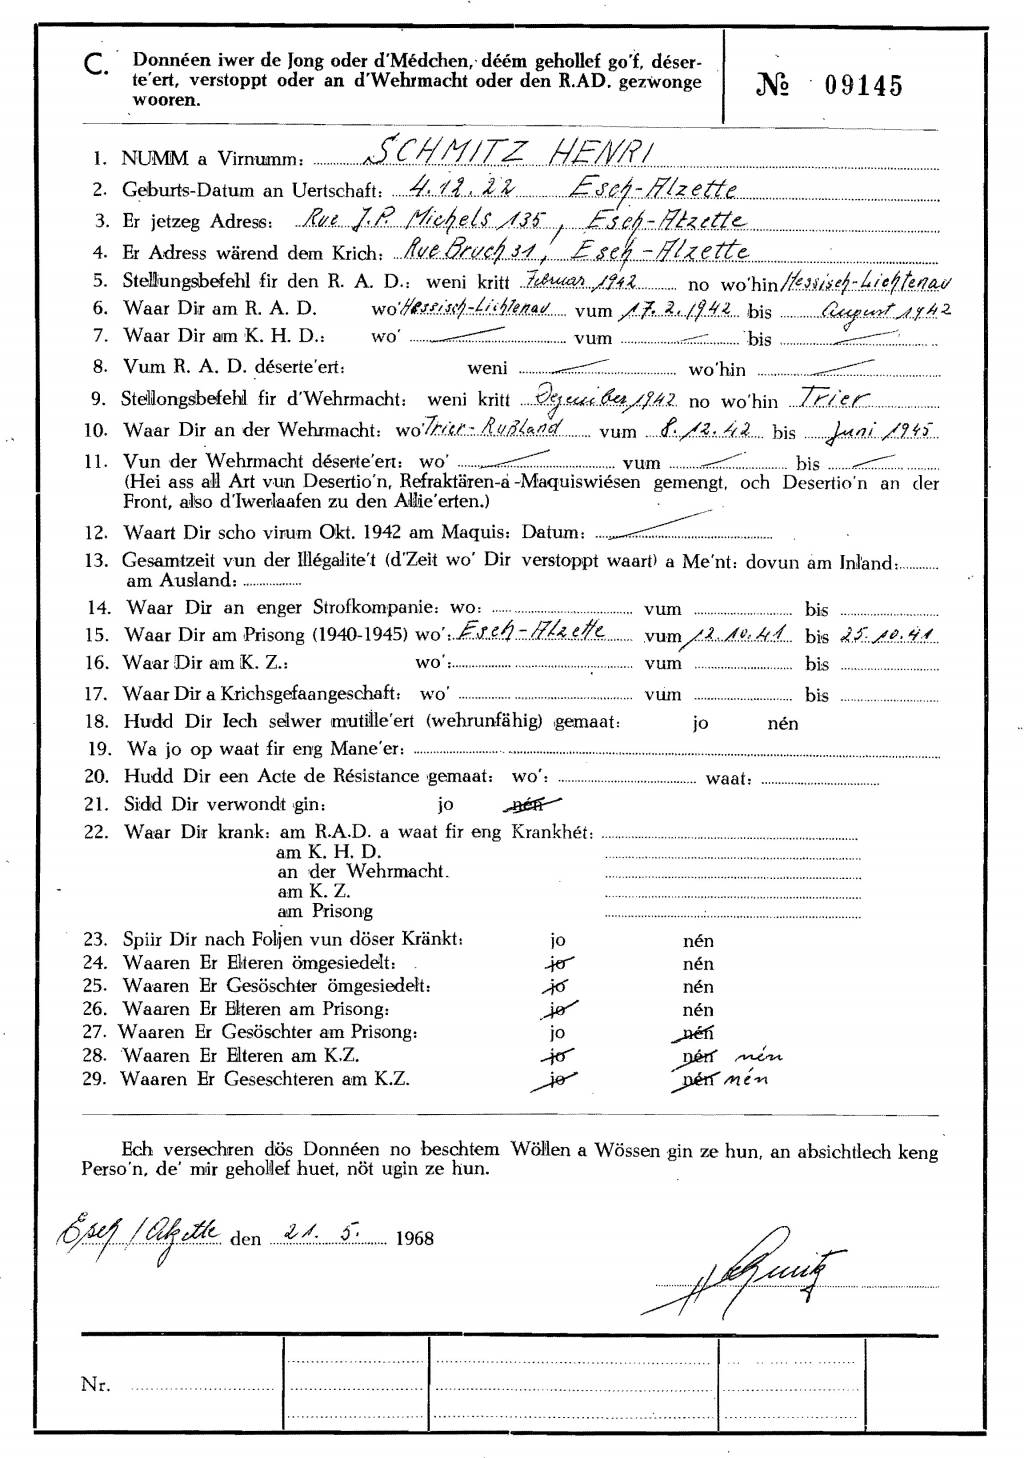 C. Donnéen iwer de Jong oder d'Médchen, déém gehollef go'f, déser-
te'ert, verstoppt oder an d'Wehrmacht oder den R.AD. gezwonge
wooren.
№ 09145
1. NUMM a Virnumm: SCHMITZ HENRI
2. Geburts-Datum an Uertschaft: 4.12.22 Esch-Alzette
3. Er jetzeg Adress: Rue J.P. Michels 135, Esch-Alzette
4. Er Adress wärend dem Krich: Rue Bruch 31, Esch-Alzette
5. Stellungsbefehl fir den R. A. D.: weni kritt Februar 1942 no wo'hin Hessisch-Lichtenau
6. Waar Dir am R. A. D. wo' Hessisch-Lichtenau vum 17.2.1942 bis August 1942
7. Waar Dir am K. H. D.: wo' — vum — bis —
8. Vum R. A. D. déserte'ert: weni — wo'hin —
9. Stellongsbefehl fir d'Wehrmacht: weni kritt Dezember 1942 no wo'hin Trier
10. Waar Dir an der Wehrmacht: wo' Trier-Rußland vum 8.12.42 bis Juni 1945
11. Vun der Wehrmacht déserte'ert: wo' — vum — bis —
(Hei ass all Art vun Desertio'n, Refraktären-a-Maquiswiésen gemengt, och Desertio'n an der
Front, also d'Iwerlaafen zu den Allie'erten.)
12. Waart Dir scho virum Okt. 1942 am Maquis: Datum: —
13. Gesamtzeit vun der Illégalite't (d'Zeit wo' Dir verstoppt waart) a Me'nt: dovun am Inland:
am Ausland:
14. Waar Dir an enger Strofkompanie: wo: vum bis
15. Waar Dir am Prisong (1940-1945) wo': Esch-Alzette vum 12.10.41 bis 25.10.41
16. Waar Dir am K. Z.: wo': vum bis
17. Waar Dir a Krichsgefaangeschaft: wo' vum bis
18. Hudd Dir Iech selwer mutille'ert (wehrunfähig) gemaat: jo nén
19. Wa jo op waat fir eng Mane'er:
20. Hudd Dir een Acte de Résistance gemaat: wo': waat:
21. Sidd Dir verwondt gin: jo nén
22. Waar Dir krank: am R.A.D. a waat fir eng Krankhét:
am K. H. D.
an der Wehrmacht.
am K. Z.
am Prisong
23. Spiir Dir nach Foljen vun döser Kränkt: jo nén
24. Waaren Er Elteren ömgesiedelt: jo nén
25. Waaren Er Gesöschter ömgesiedelt: jo nén
26. Waaren Er Elteren am Prisong: jo nén
27. Waaren Er Gesöschter am Prisong: jo nén
28. Waaren Er Elteren am K.Z. jo nén nén
29. Waaren Er Geseschteren am K.Z. jo nén nén
Ech versechren dös Donnéen no beschtem Wöllen a Wössen gin ze hun, an absichtlech keng
Perso'n, de' mir gehollef huet, nöt ugin ze hun.
Esch/Alzette den 21. 5. 1968
H Schmitz
Nr.